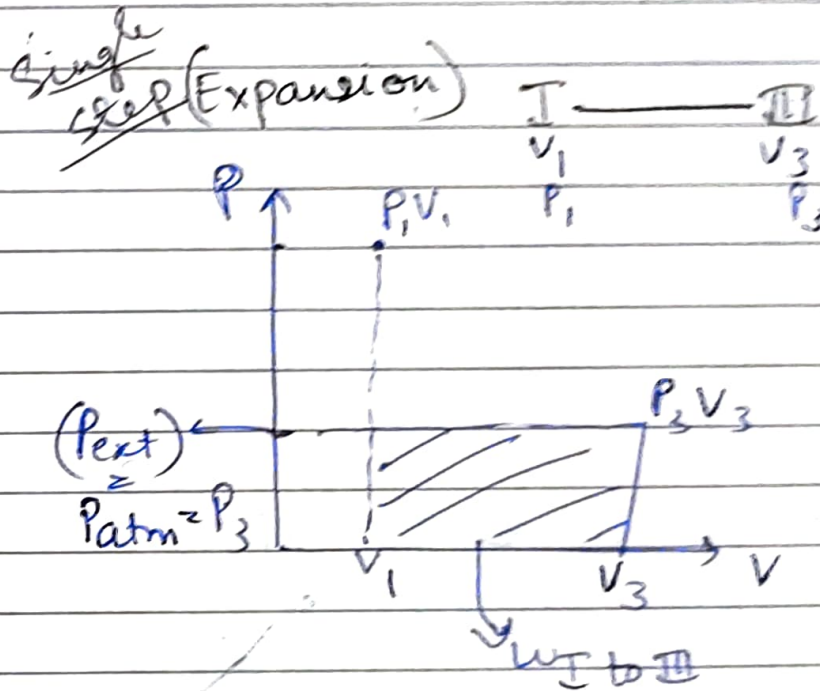 Single
step (Expansion)
I — III
V₁ V₃
P₁ P₃
P
P₁V₁
P₃V₃
(Pext)
=
Patm = P₃
V₁
V₃
V
W I to III